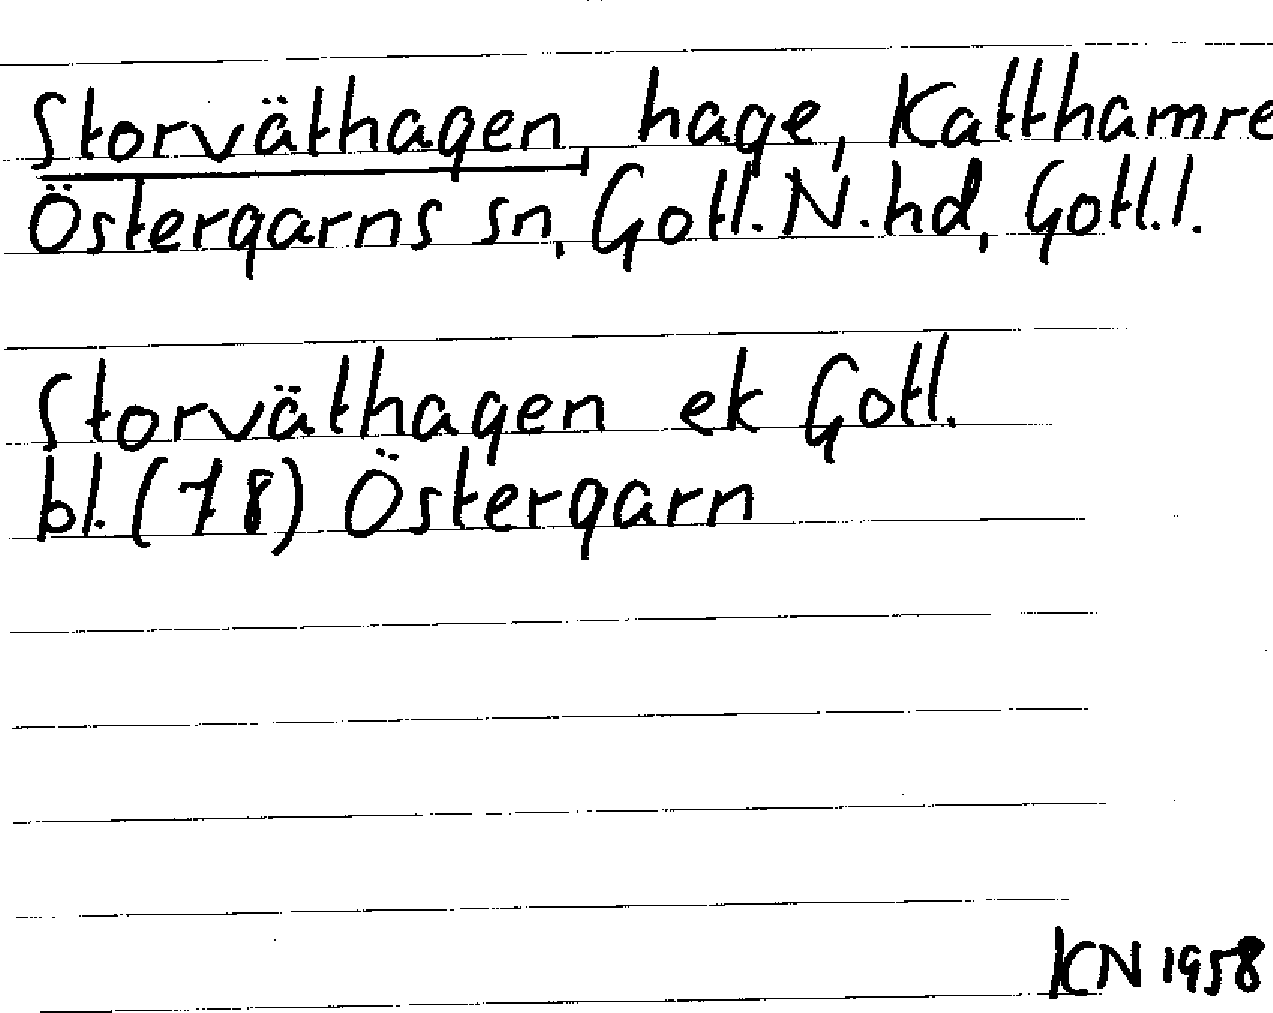 Storväthagen, hage, Katthamre
Östergarns sn, Gotl. N. hd, Gotl. l.
Storväthagen ek Gotl.
bl. (78) Östergarn
KN 1958